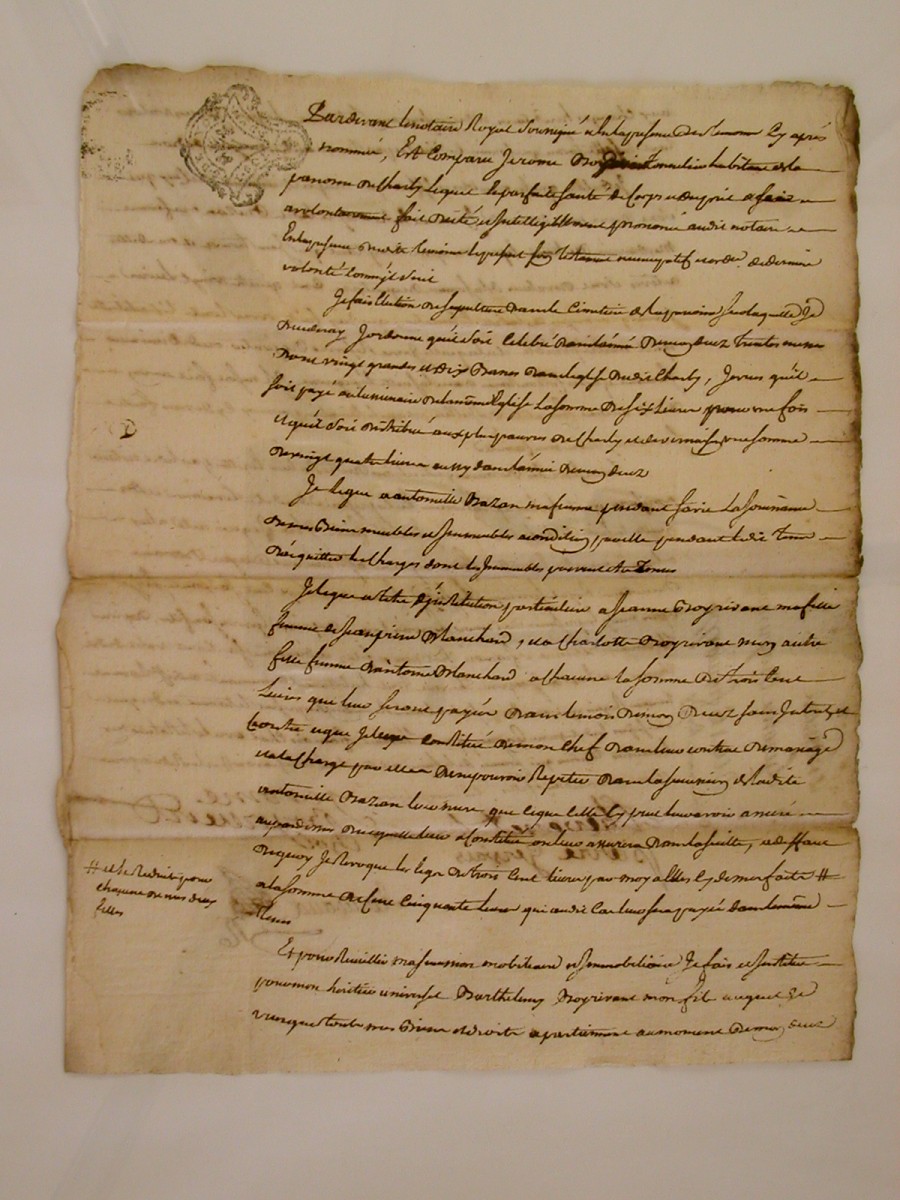 Pardevant le notaire Royal Soussigné et en la presence des temoins Cy après
nommés, Est Comparu Jerome habitant de la
paroisse de Charly lequel en parfaite santé de Corps et d'esprit a fait
a volontairement fait dicté et Intelligiblement prononcé audit notaire
En la presence desdits temoins le present son testament nuncupatif et ordce de derniere
volonté Comme s'ensuit
Je fais Election de sepulture dans le Cimetiere de la paroisse sur laquelle Je
decederay J'ordonne qu'il soit Celebré dans l'année de mon decez trente messes
Dont vingt grandes et dix basses dans l'eglise dudit Charly, Je veux qu'il
soit payé au luminaire de la meme Eglise la somme de six Livres pour une fois
et qu'il soit distribué aux plus pauvres de Charly et de vernaison une somme
de vingt quatre livres aussy dans l'année de mon decez
Je legue a antoinette Bazan ma femme pendant sa vie la Jouissance
de mes Biens meubles et Immeubles a condition par elle pendant ledit tems
D'acquitter les Charges dont les Immeubles peuvent etre tenus
Je legue a titre d'institution particuliere a Jeanne Boyrivant ma fille
femme de Jean pierre Blanchard, et a Charlotte Boyrivant mon autre
fille femme d'antoine Blanchard a chacune la somme de trois Cent
Livres que leur seront payée dans le mois de mon decez sans Interet et
outre ce que Je leur Constitué de mon Chef dans leur contrat de mariage
et a la Charge par elles de ne pouvoir Repeter dans la succession de ladite
antoinette Bazan leur mere que ce que Celle Cy peut leur avoir assuré
au pardessus de ce qu'elle leur a Constitué ou leur assurera dans la suitte, et deffaut
de quoy Je Revoque les legs de trois Cent livres par moy a Elles Cy dessus faits #
a la somme de Cent Cinquante livres qui audit Cas leur sera payée dans le meme
tems
# et le Reduit pour
chacune de mes deux
filles
Et pour Recueillir ma succession mobiliaire et Immobiliaire Je fais et Institue
pour mon heritier universel Barthelemy Boyrivant mon fils auquel Je
veux que touts mes Biens et droits apartiennent au moment de mon decez